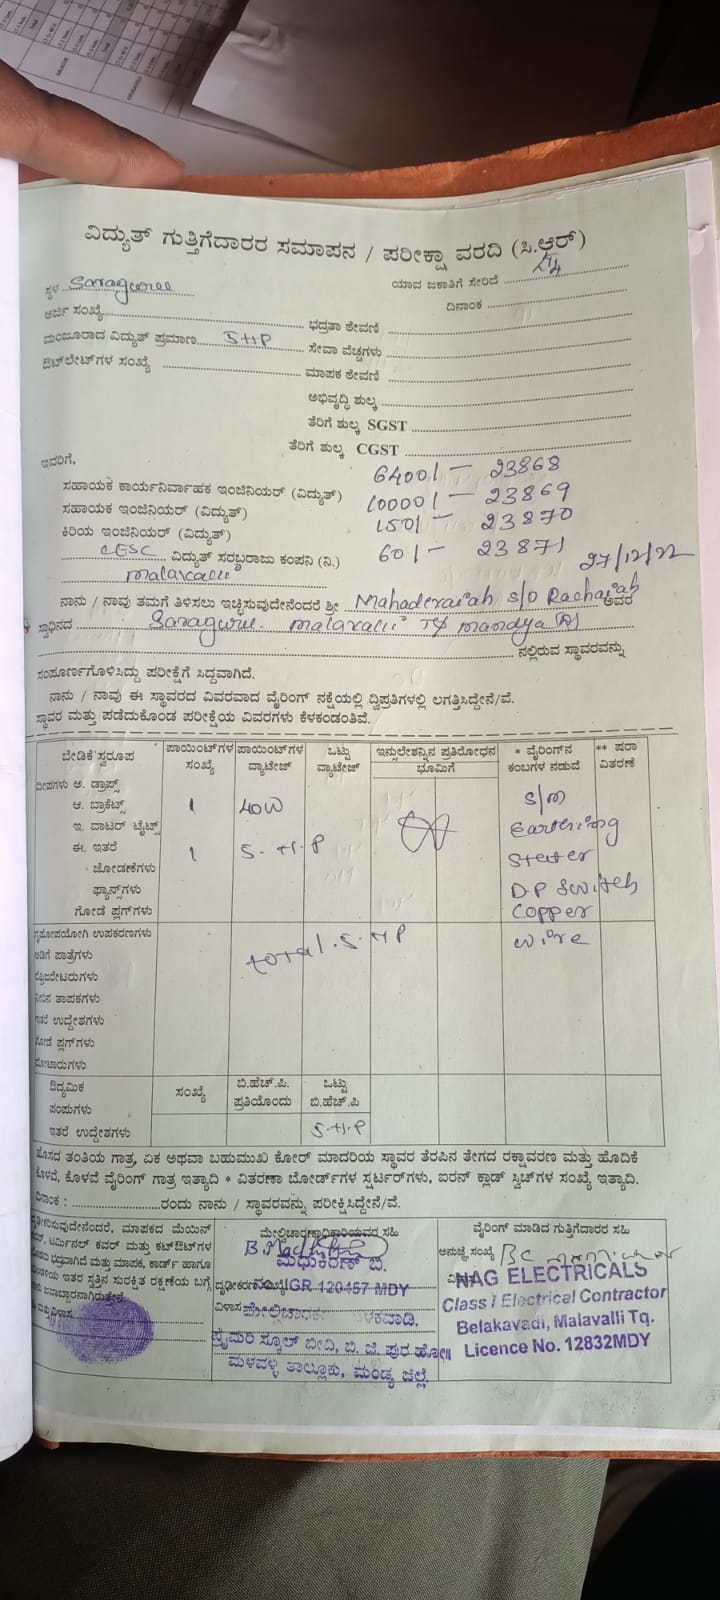 ವಿದ್ಯುತ್ ಗುತ್ತಿಗೆದಾರರ ಸಮಾಪನ / ಪರೀಕ್ಷಾ ವರದಿ (ಸಿ.ಆರ್)
ಸ್ಥಳ ಯಾವ ಜಕಾತಿಗೆ ಸೇರಿದೆ
ಅರ್ಜಿ ಸಂಖ್ಯೆ ದಿನಾಂಕ
ಭದ್ರತಾ ಠೇವಣಿ
ಮಂಜೂರಾದ ವಿದ್ಯುತ್ ಪ್ರಮಾಣ 5 HP ಸೇವಾ ವೆಚ್ಚಗಳು
ಔಟ್‌ಲೇಟ್‌ಗಳ ಸಂಖ್ಯೆ ಮಾಪಕ ಠೇವಣಿ
ಅಭಿವೃದ್ಧಿ ಶುಲ್ಕ
ತೆರಿಗೆ ಶುಲ್ಕ SGST
ತೆರಿಗೆ ಶುಲ್ಕ CGST
ಇವರಿಗೆ,
ಸಹಾಯಕ ಕಾರ್ಯನಿರ್ವಾಹಕ ಇಂಜಿನಿಯರ್ (ವಿದ್ಯುತ್) 6400/- 23868
ಸಹಾಯಕ ಇಂಜಿನಿಯರ್ (ವಿದ್ಯುತ್) 10000/- 23869
ಕಿರಿಯ ಇಂಜಿನಿಯರ್ (ವಿದ್ಯುತ್) 150/- 23870
CESC ವಿದ್ಯುತ್ ಸರಬ್ಬರಾಜು ಕಂಪನಿ (ನಿ.) 60/- 23871 27/12/22
ನಾನು / ನಾವು ತಮಗೆ ತಿಳಿಸಲು ಇಚ್ಛಿಸುವುದೇನೆಂದರೆ ಶ್ರೀ Mahadevaiah S/o Rachaiah ಅವರ
ಸ್ವಾಧಿನದ
ನಲ್ಲಿರುವ ಸ್ಥಾವರವನ್ನು
ಸಂಪೂರ್ಣಗೊಳಿಸಿದ್ದು ಪರೀಕ್ಷೆಗೆ ಸಿದ್ದವಾಗಿದೆ.
ನಾನು / ನಾವು ಈ ಸ್ಥಾವರದ ವಿವರವಾದ ವೈರಿಂಗ್ ನಕ್ಷೆಯಲ್ಲಿ ದ್ವಿಪ್ರತಿಗಳಲ್ಲಿ ಲಗತ್ತಿಸಿದ್ದೇನೆ/ವೆ.
ಸ್ಥಾವರ ಮತ್ತು ಪಡೆದುಕೊಂಡ ಪರೀಕ್ಷೆಯ ವಿವರಗಳು ಕೆಳಕಂಡಂತಿವೆ.
ಬೇಡಿಕೆ ಸ್ವರೂಪ ಪಾಯಿಂಟ್‌ಗಳ ಸಂಖ್ಯೆ ಪಾಯಿಂಟ್‌ಗಳ ವ್ಯಾಟೇಜ್ ಒಟ್ಟು ವ್ಯಾಟೇಜ್ ಇನ್ಸುಲೇಶನ್ನಿನ ಪ್ರತಿರೋಧನ ಭೂಮಿಗೆ * ವೈರಿಂಗ್‌ನ ಕಂಬಗಳ ನಡುವೆ ** ಷರಾ ವಿತರಣೆ
ದೀಪಗಳು ಅ. ಡ್ರಾಪ್ಸ್ S/m
ಆ. ಬ್ರಾಕೆಟ್ಸ್ 1 40W
ಇ. ವಾಟರ್ ಟೈಟ್ಸ್ Earthing
ಈ. ಇತರೆ 1 5.H.P
ಜೋಡಣೆಗಳು Stater
ಫ್ಯಾನ್‌ಗಳು DP Switch
ಗೋಡೆ ಪ್ಲಗ್‌ಗಳು Copper
ಗೃಹೋಪಯೋಗಿ ಉಪಕರಣಗಳು total. 5. HP wire
ಅಡಿಗೆ ಪಾತ್ರೆಗಳು
ರೆಫ್ರಿಜರೇಟರುಗಳು
ನೀರಿನ ತಾಪಕಗಳು
ಇತರೆ ಉದ್ದೇಶಗಳು
ಗೋಡೆ ಪ್ಲಗ್‌ಗಳು
ಮೋಟಾರುಗಳು
ಔದ್ಯಮಿಕ ಸಂಖ್ಯೆ ಬಿ.ಹೆಚ್.ಪಿ. ಪ್ರತಿಯೊಂದು ಒಟ್ಟು ಬಿ.ಹೆಚ್.ಪಿ
ಪಂಪುಗಳು
ಇತರೆ ಉದ್ದೇಶಗಳು 5.H.P
ಹೊಸದ ತಂತಿಯ ಗಾತ್ರ, ಏಕ ಅಥವಾ ಬಹುಮುಖಿ ಕೋರ್ ಮಾದರಿಯ ಸ್ಥಾವರ ತೆರಪಿನ ತೇಗದ ರಕ್ಷಾವರಣ ಮತ್ತು ಹೊದಿಕೆ
ಕೊಳವೆ, ಕೊಳವೆ ವೈರಿಂಗ್ ಗಾತ್ರ ಇತ್ಯಾದಿ * ವಿತರಣಾ ಬೋರ್ಡ್‌ಗಳ ಸ್ಟರ್ಟರ್‌ಗಳು, ಐರನ್ ಕ್ಲಾಡ್ ಸ್ವಿಚ್‌ಗಳ ಸಂಖ್ಯೆ ಇತ್ಯಾದಿ.
ದಿನಾಂಕ : ರಂದು ನಾನು / ಸ್ಥಾವರವನ್ನು ಪರೀಕ್ಷಿಸಿದ್ದೇನೆ/ವೆ.
ಮಾಪಕದ ಮೆಯಿನ್
ಟರ್ಮಿನಲ್ ಕವರ್ ಮತ್ತು ಕಟ್‌ಔಟ್‌ಗಳ
ಭದ್ರವಾಗಿದೆ ಮತ್ತು ಮಾಪಕ, ಕಾರ್ಡ್ ಹಾಗೂ
ಇತರ ಸ್ವತ್ತಿನ ಸುರಕ್ಷಿತ ರಕ್ಷಣೆಯ ಬಗ್ಗೆ
ಜವಾಬ್ದಾರನಾಗಿರುತ್ತೇನೆ
ಮೇಲ್ವಿಚಾರಣಾಧಿಕಾರಿಯವರ ಸಹಿ
ಮಧುಕಿರಣ್ ಬಿ.
ದೃಢೀಕರಣ ಸಂಖ್ಯೆ IGR 120457 MDY
ವಿಳಾಸ
ಪ್ರೈಮರಿ ಸ್ಕೂಲ್ ಬೀದಿ, ಬಿ. ಜಿ. ಪುರ ಹೋ॥
ಮಳವಳ್ಳಿ ತಾಲ್ಲೂಕು, ಮಂಡ್ಯ ಜಿಲ್ಲೆ.
ವೈರಿಂಗ್ ಮಾಡಿದ ಗುತ್ತಿಗೆದಾರರ ಸಹಿ
ಅನುಜ್ಞೆ ಸಂಖ್ಯೆ
NAG ELECTRICALS
Class I Electrical Contractor
Belakavadi, Malavalli Tq.
Licence No. 12832MDY